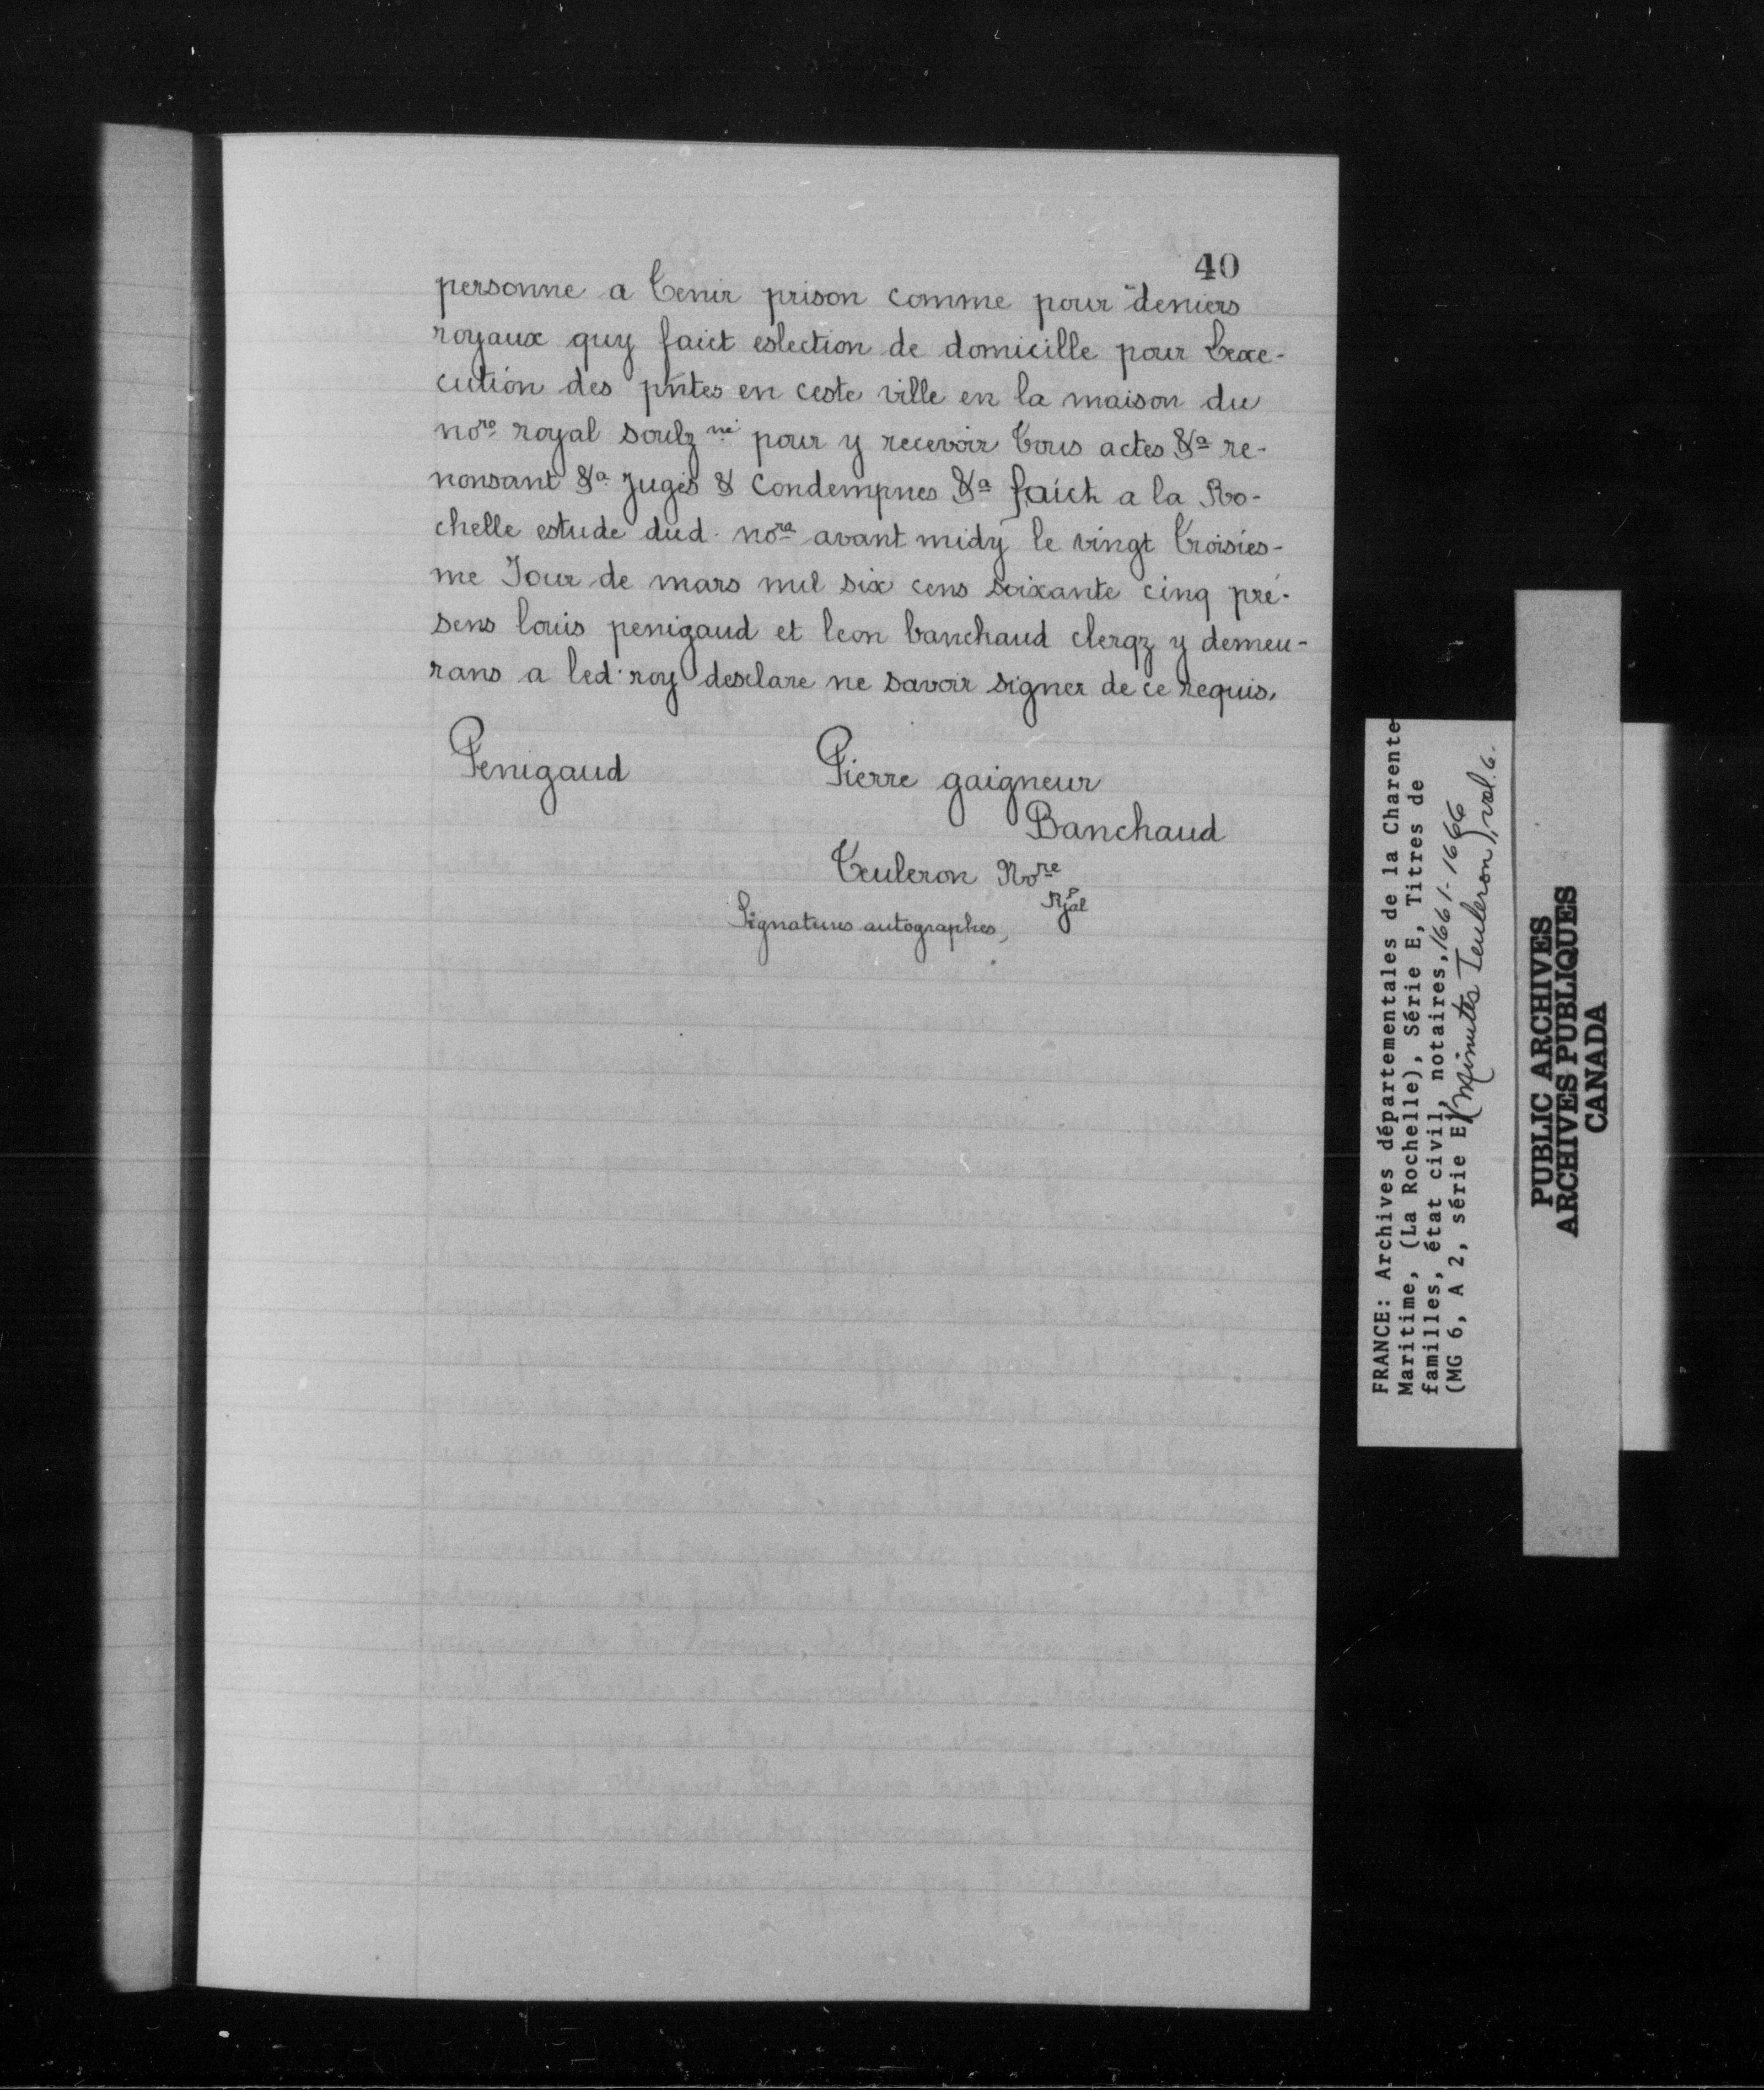 40
personne a tenir prison comme pour deniers
royaux quy faict eslection de domicille pour lexe-
cution des pñtes en ceste ville en la maison du
nore royal soulz né pour y recevoir tous actes &a re-
nonsant &a Jugés & Condempnes &a faict a la Ro-
chelle estude dud. nore avant midy le vingt troisies-
me Jour de mars mil six cens soixante cinq pré-
sens louis penigaud et leon banchaud clergz y demeu-
rans a led. roy desclare ne savoir signer de ce requis.
Penigaud Pierre gaigneur
Banchaud
Teuleron Nore
Rjal
Signatures autographes,
FRANCE: Archives départementales de la Charente
Maritime, (La Rochelle), Série E, Titres de
familles, état civil, notaires, 1661-1666
(MG 6, A 2, série E) (Minutes Teuleron), vol. 6.
PUBLIC ARCHIVES
ARCHIVES PUBLIQUES
CANADA